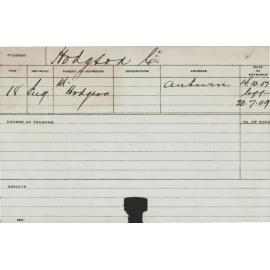 STUDENT Hodgson
AGE RELIGION PARENT OR GUARDIAN OCCUPATION ADDRESS DATE OF ENTRANCE
18 Eng Mr Hodgson Auburn 14.10.07
left
20.7.09
COURSE OF TRAINING
RESULTS